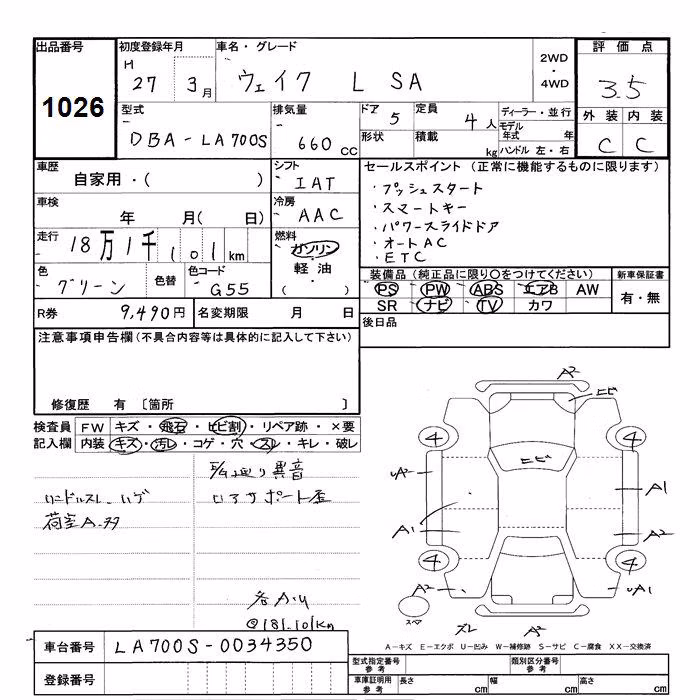 出品番号 初度登録年月 車名・グレード 2WD・4WD 評価点
1026 H 27 3月 ウェイク L SA 3.5
型式 排気量 ドア 定員 ディーラー・並行 外装 内装
DBA-LA700S 660cc 5 4人 モデル年式 年 C C
形状 積載 kg ハンドル 左・右
車歴 シフト セールスポイント (正常に機能するものに限ります)
自家用・( ) IAT ・プッシュスタート
車検 冷房 ・スマートキー
年 月( 日) AAC ・パワースライドドア
走行 燃料 ・オートAC
18万1千101km ガソリン ・ETC
色 色替 色コード 軽油・( ) 装備品 (純正品に限り〇をつけてください) 新車保証書
グリーン G55 PS PW ABS エアB AW 有・無
R券 9,490円 名変期限 月 日 SR ナビ TV カワ
注意事項申告欄(不具合内容等は具体的に記入して下さい) 後日品
修復歴 有 〔箇所 〕
検査員 FW キズ・飛石・ヒビ割・リペア跡・×要
記入欄 内装 キズ・汚レ・コゲ・穴・スレ・キレ・破レ
異音
ハンドルスレ、ハゲ ロアサポート歪
荷室A、
各A、U
@181,101km
A2
ヒビ
4 4
ヒビ
A2 A1
A1 A2
4 4
A2 A1
スペア
ズレ A2
A-キズ E-エクボ U-凹み W-補修跡 S-サビ C-腐食 XX-交換済
車台番号 LA700S-0034350
登録番号
型式指定番号 参考 類別区分番号 参考
車庫証明用 参考 長さ cm 幅 cm 高さ cm